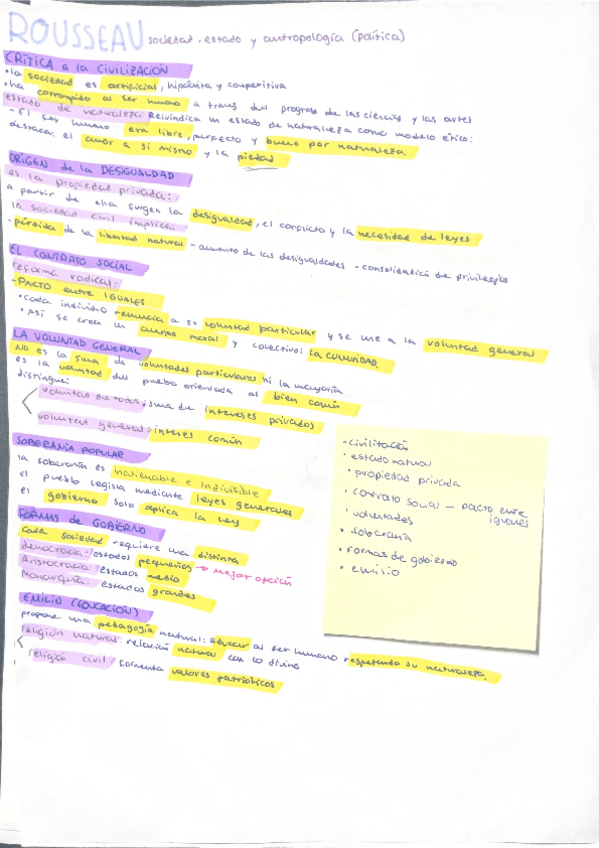 ROUSSEAU sociedad, estado y antropología (política)
CRÍTICA a la CIVILIZACIÓN
• la sociedad es artificial, hipócrita y competitiva
• ha corrompido al ser humano a través del progreso de las ciencias y las artes
estado de naturaleza: Reivindica un estado de naturaleza como modelo ético:
- El ser humano era libre, perfecto y bueno por naturaleza.
destaca: el amor a sí mismo y la piedad
ORIGEN de la DESIGUALDAD
es la propiedad privada:
a partir de ella surgen la desigualdad, el conflicto y la necesidad de leyes
la sociedad civil implica:
- pérdida de la libertad natural - aumento de las desigualdades - consolidación de privilegios
EL CONTRATO SOCIAL
reforma radical:
- PACTO entre IGUALES
• cada individuo renuncia a su voluntad particular y se une a la voluntad general
• Así se crea un cuerpo moral y colectivo: la comunidad.
LA VOLUNTAD GENERAL
NO es la suma de voluntades particulares ni la mayoría
es la voluntad del pueblo orientada al bien común
distingue:
voluntad de todos: suma de intereses privados
voluntad general: interés común
SOBERANÍA POPULAR
la soberanía es inalienable e indivisible
el pueblo legisla mediante leyes generales
el gobierno solo aplica la ley
FORMAS de GOBIERNO
cada sociedad requiere una distinta
democracia: estados pequeños → mejor opción
Aristocracia: estados medio
Monarquía: estados grandes
EMILIO (EDUCACIÓN)
propone una pedagogía natural: educar al ser humano respetando su naturaleza.
religión natural: relación natural con lo divino
religión civil: fomenta valores patrióticos
• civilización
• estado natural
• propiedad privada
• contrato social - pacto entre iguales
• voluntades
• soberanía
• formas de gobierno
• emilio